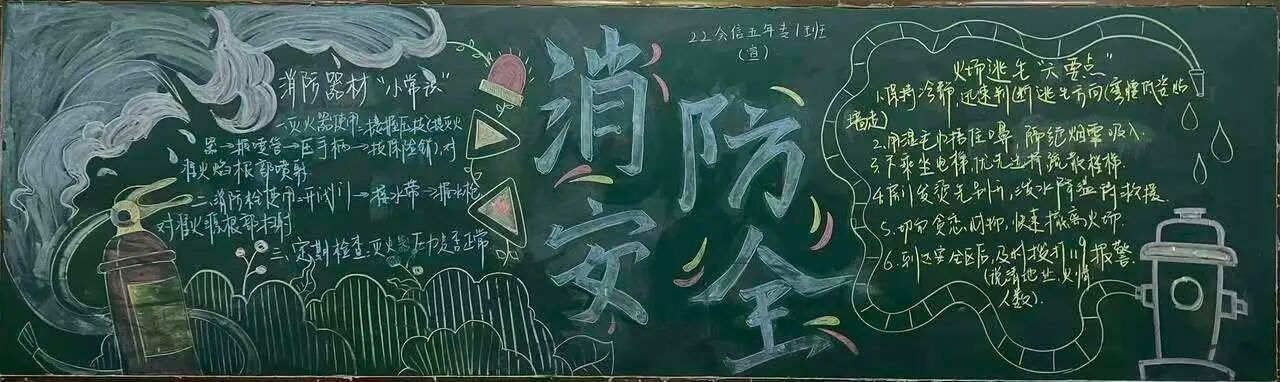 消防器材“小常识”
一.灭火器使用:提握压技(提灭火
器→振喷管→压手柄→拔保险销),对
准火焰根部喷射
二.消防栓使用:开阀门→接水带→握水枪
对准火源根部扫射
三.定期检查:灭火器压力是否正常
消防
安全
22会信五年专1班
(宣)
火场逃生“六要点”
1.保持冷静,迅速判断逃生方向,弯腰低姿贴
墙走)
2.用湿毛巾捂住口鼻,隔绝烟雾吸入.
3.不乘坐电梯,优先选择疏散楼梯.
4.房门发烫先别开,泼水降温待救援.
5.切勿贪恋财物,快速撤离火场.
6.到达安全区后,及时拨打119报警.
(说清地址,火情
人数).